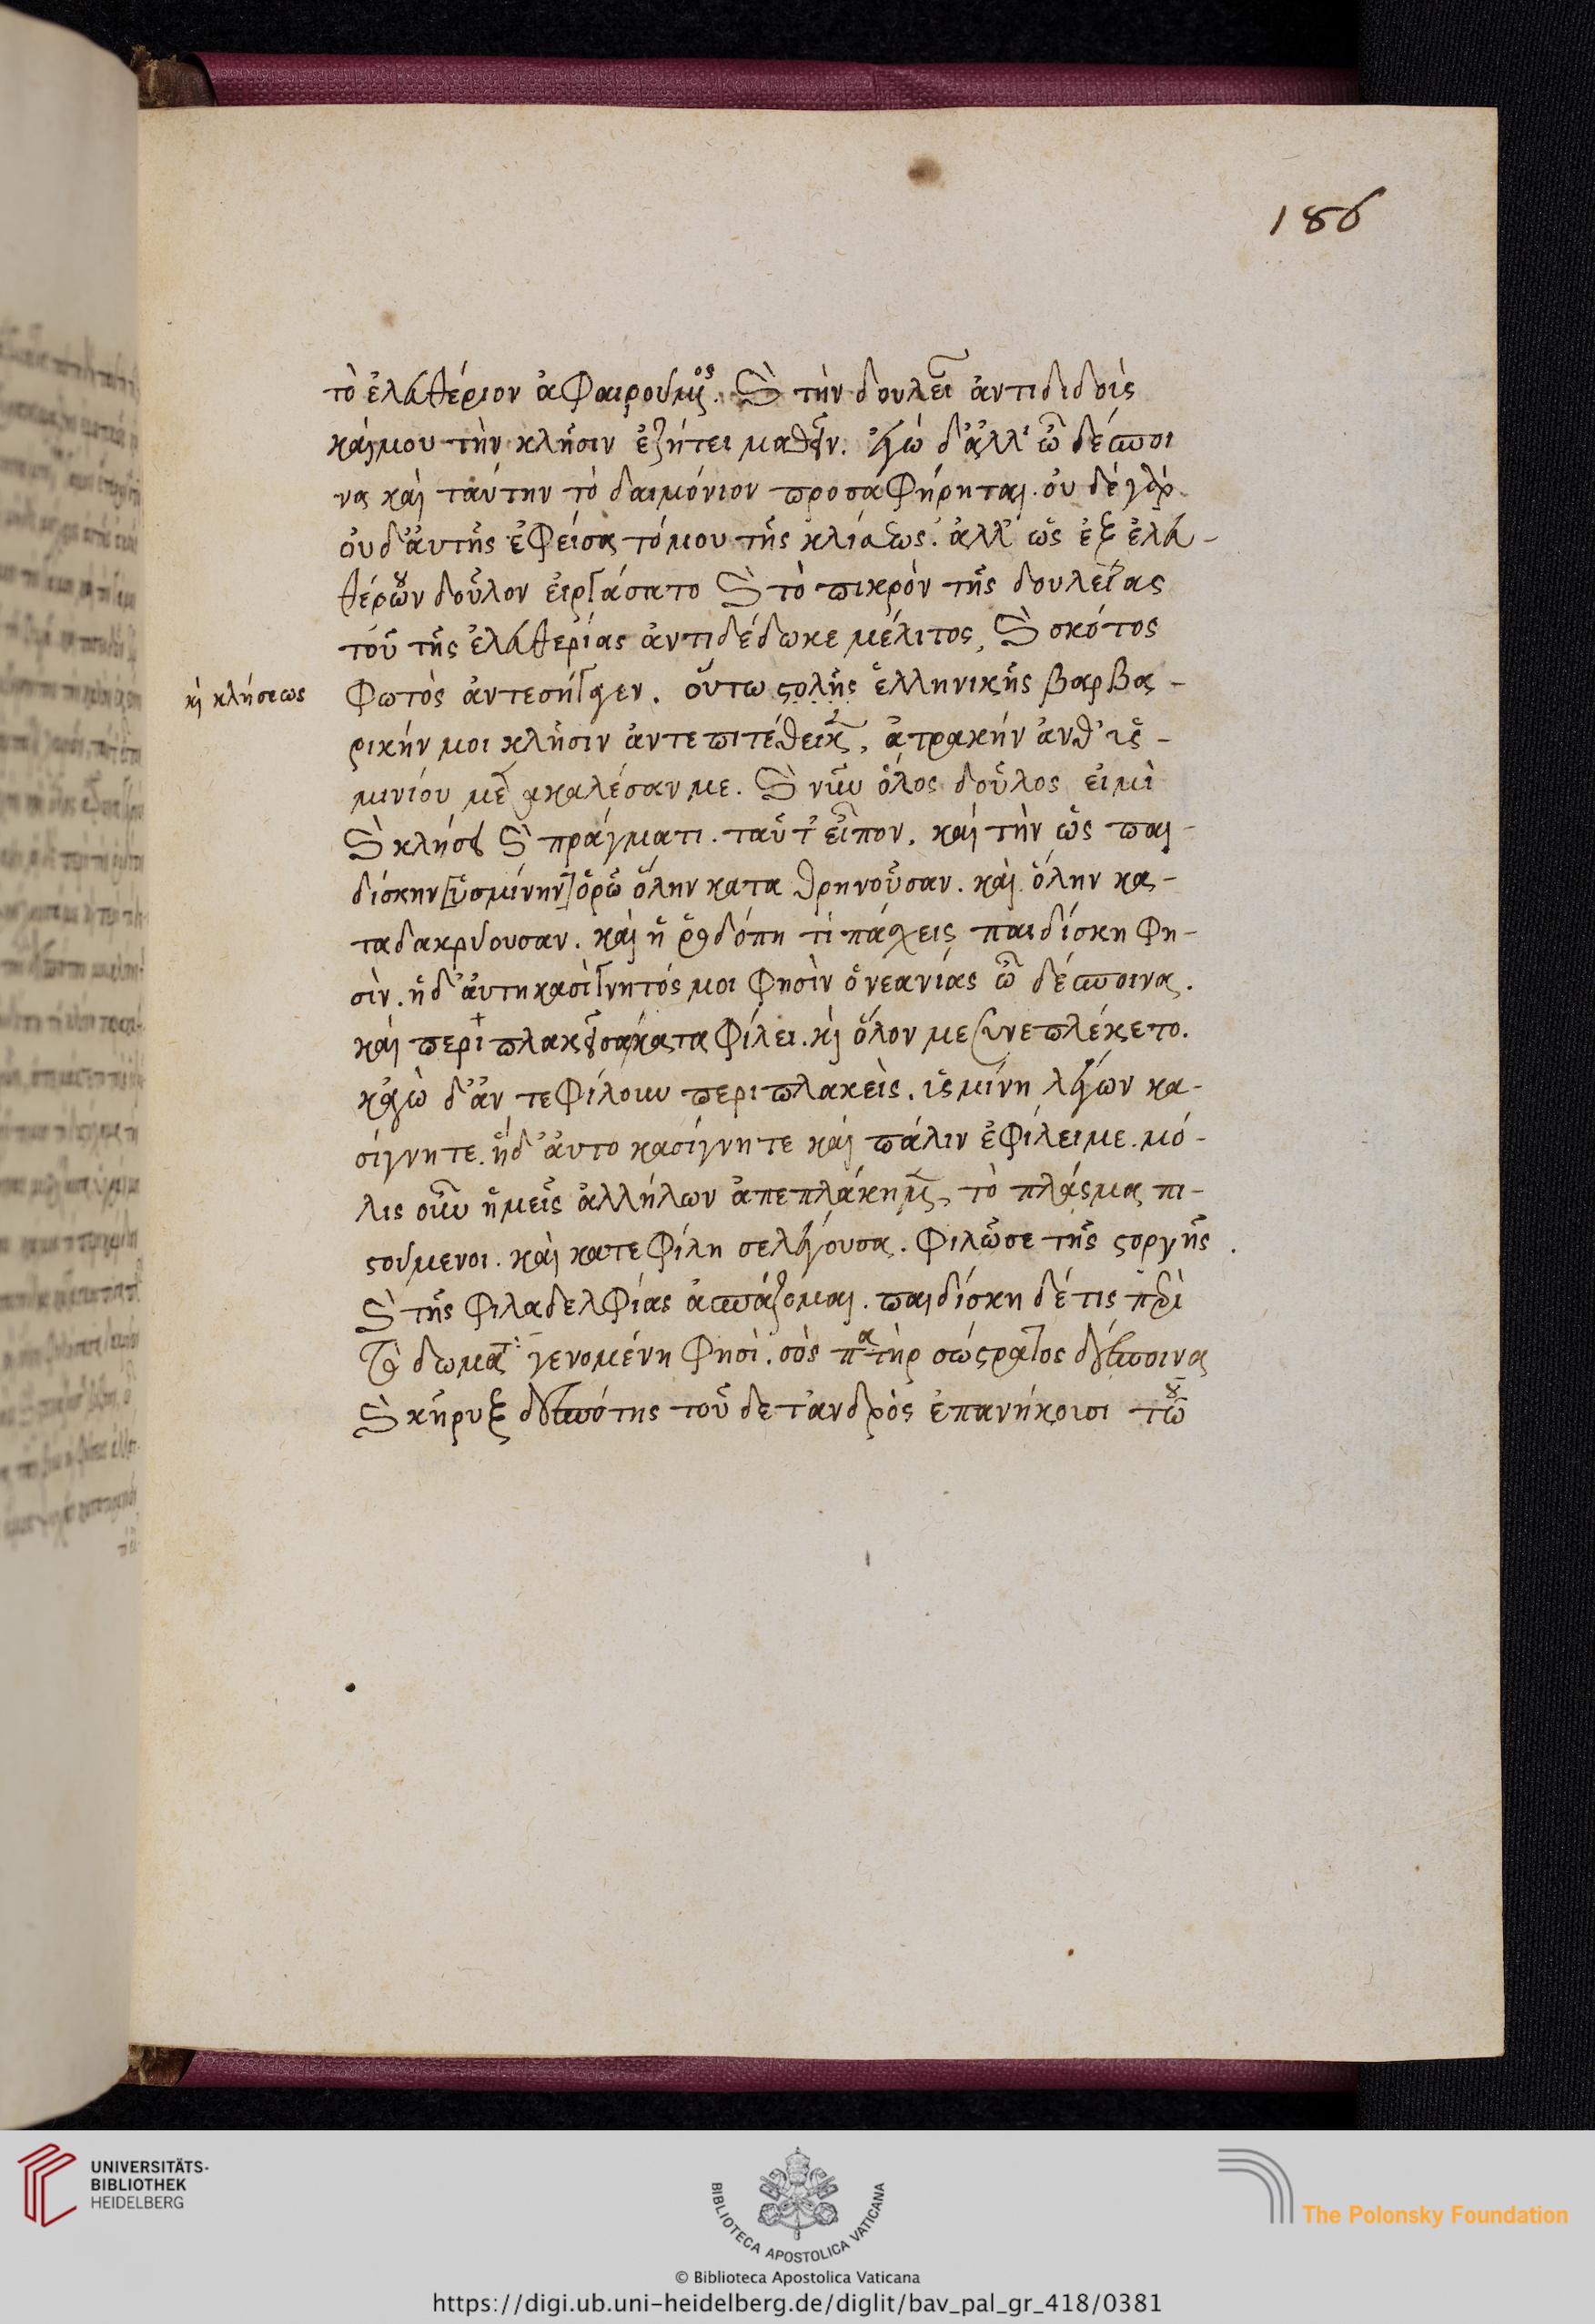 186
τὸ ἐλευθέριον ἀφαιρούμενος. καὶ τὴν δουλείαν ἀντιδιδοὶς
καί μου τὴν κλῆσιν ἐζήτει μαθεῖν. ἐγὼ δ' ἀλλ' ὦ δέσποι
να καὶ ταύτην τὸ δαιμόνιον προσαφήρηται. οὐδὲ γὰρ
οὐδ' αὐτῆς ἐφείσατό μου τῆς κλήσεως. ἀλλ' ὡς ἐξ ἐλευ-
θέρων δοῦλον εἰργάσατο καὶ τὸ πικρὸν τῆς δουλείας
τοῦ τῆς ἐλευθερίας ἀντιδέδωκε μέλιτος, καὶ σκότος
καὶ κλήσεως
φωτὸς ἀντεσήγαγεν. οὕτω στολῆς ἑλληνικῆς βαρβα-
ρικήν μοι κλῆσιν ἀντεπιτέθεικε, ἀτρακὴν ἀνθ' ὑσ-
μινίου μετακαλέσαν με. καὶ νῦν ὅλος δοῦλος εἰμὶ
καὶ κλήσει καὶ πράγματι. ταῦτ' εἶπον. καὶ τὴν ὡς παι-
δίσκην [ὑσμίνην] ὁρῶ ὅλην καταθρηνοῦσαν. καὶ ὅλην κα-
ταδακρύουσαν. καὶ ἡ ῥοδόπη τί πάσχεις παιδίσκη φη-
σίν. ἡ δ' αὐτηκασίγνητός μοι φησὶν ὁ νεανίας ὦ δέσποινα.
καὶ περιπλακεῖσα κατα φίλει. καὶ ὅλον με συνεπλέκετο.
κἀγὼ δ' ἀντεφίλουν περιπλακεὶς. ὑσμίνη λέγων κα-
σίγνητε. ἡ δ' αὐτοκασίγνητε καὶ πάλιν ἐφίλει με. μό-
λις οὖν ἡμεῖς ἀλλήλων ἀπεπλάκημεν, τὸ πλάσμα πι-
στούμενοι. καὶ κατεφίλησε λέγουσα. φιλῶ σε τῆς στοργῆς
καὶ τῆς φιλαδελφίας ἀσπάζομαι. παιδίσκη δέ τις περὶ
τὸ δωμάτιον γενομένη φησὶ. σὸς πατὴρ σώστρατος δέσποινα
καὶ κῆρυξ δεσπότης τοῦδε τἀνδρὸς ἐπανήκουσι τῶν
UNIVERSITÄTS-
BIBLIOTHEK
HEIDELBERG
BIBLIOTECA APOSTOLICA VATICANA
The Polonsky Foundation
© Biblioteca Apostolica Vaticana
https://digi.ub.uni-heidelberg.de/diglit/bav_pal_gr_418/0381